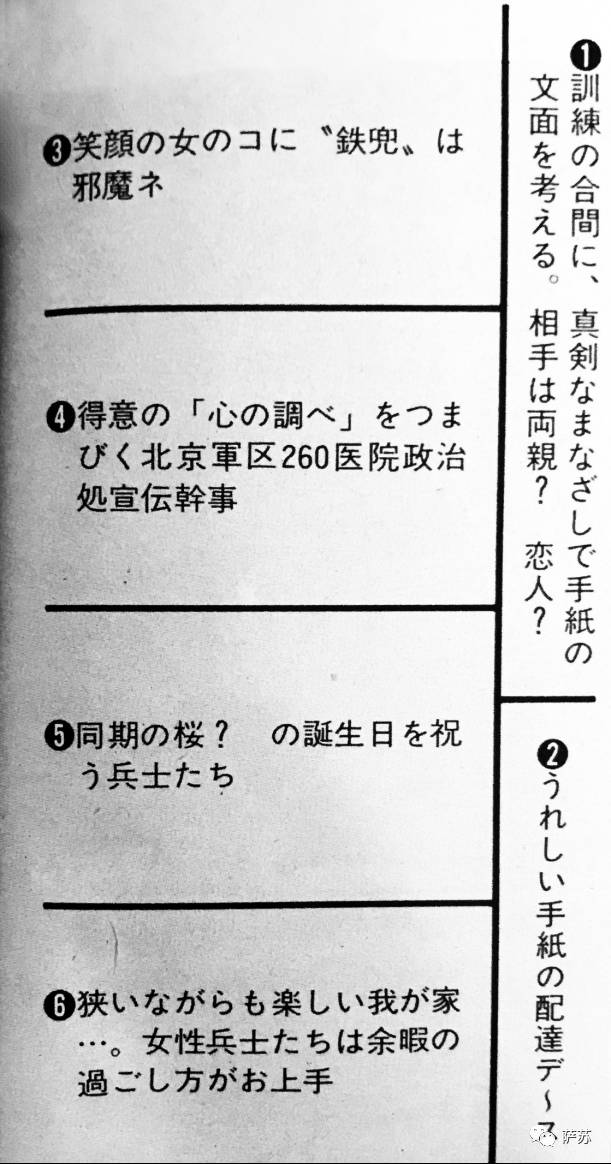 ❶訓練の合間に、真剣なまなざしで手紙の
文面を考える。相手は両親?　恋人?
❷うれしい手紙の配達デ〜ス
❸笑顔の女のコに〝鉄兜〟は
邪魔ネ
❹得意の「心の調べ」をつま
びく北京軍区260医院政治
処宣伝幹事
❺同期の桜?　の誕生日を祝
う兵士たち
❻狭いながらも楽しい我が家
…。女性兵士たちは余暇の
過ごし方がお上手
萨苏